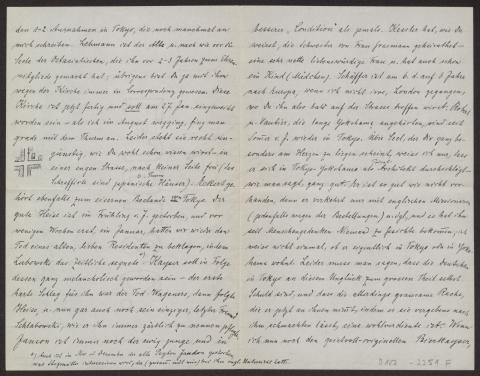 den 1-2 Ausnahmen in Tokyo, die noch manchmal an
mich schreiben. Lehmann ist der Alte u. nach wie vor die
Seele der Ostasiatischen, die ihn vor 2-3 Jahren zum Ehren-
mitgliede gemacht hat; übrigens bist Du ja mit ihm
wegen der Kirche immer in Correspondenz gewesen. Diese
Kirche ist jetzt fertig und soll am 27 Jan. eingeweiht
worden sein - als ich im August wegging, fing man
grade mit dem Thurm an. Leider steht sie recht un-
günstig, wie Du wohl schon wissen wirst, in
einer engen Strasse, nach kleiner Seite frei (das
sind japanische Häuser).
hört ebenfalls zum eisernen Bestande Tokyo. Der
gute Heise ist im Frühling v. J. gestorben, und vor
wenigen Wochen erst, im Januar, hatten wir wieder den
Tod eines alten, lieben Residenten zu beklagen, indem
das Zeitliche segnete. Kaspar soll in Folge
dessen ganz melancholisch geworden sein - der erste
harte Schlag für ihn war der Tod Wageners, dann folgte
Heise, u. nun gar auch noch sein einziger, letzter Freund
wie er ihn immer zärtlich zu nennen pflegte.
Janson ist immer noch der ewig junge, und in
besserer „Condition" als jemals. Kessler hat, wie Du
weisst, die Schwester von Frau geheirathet -
eine sehr nette liebenswürdige Frau u. hat auch schon
ein Kind (Mädchen). Schäffer ist am 6. d. auf 6 Jahre
nach Europa, wenn ich nicht irre, London gegangen,
wo Du ihn also bald auf der Strasse treffen wirst.
u. Vautier, die lange Yokohama angehörten, sind seit
v. J. wieder in Tokyo. Über Seel, der Dir ganz be-
sonders am Herzen zu liegen scheint, weiss ich nur, dass
er sich in Tokyo-Yokohama als Architekt durchschlägt -
wie man sagt, ganz gut. Er ist so gut wie nicht vor-
handen, denn er verkehrt nur mit englischen Missionaren
(jedenfalls wegen der Bestellungen) u. dgl., und es hat ihn
seit Menschengedenken Niemand zu Gesichte bekommen; ich
weiss nicht einmal, ob er eigentlich in Tokyo oder in Yoko-
hama wohnt. Leider muss man sagen, dass die Deutschen
in Tokyo an diesem Unglück zum grossen Theil selbst
Schuld sind, und dass die allerdings grausame Rache,
die er jetzt an ihnen nimmt, indem er sie vergebens nach
ihm schmachten lässt, eine wohlverdiente ist. Wenn
ich nun noch den geistvoll-originellen